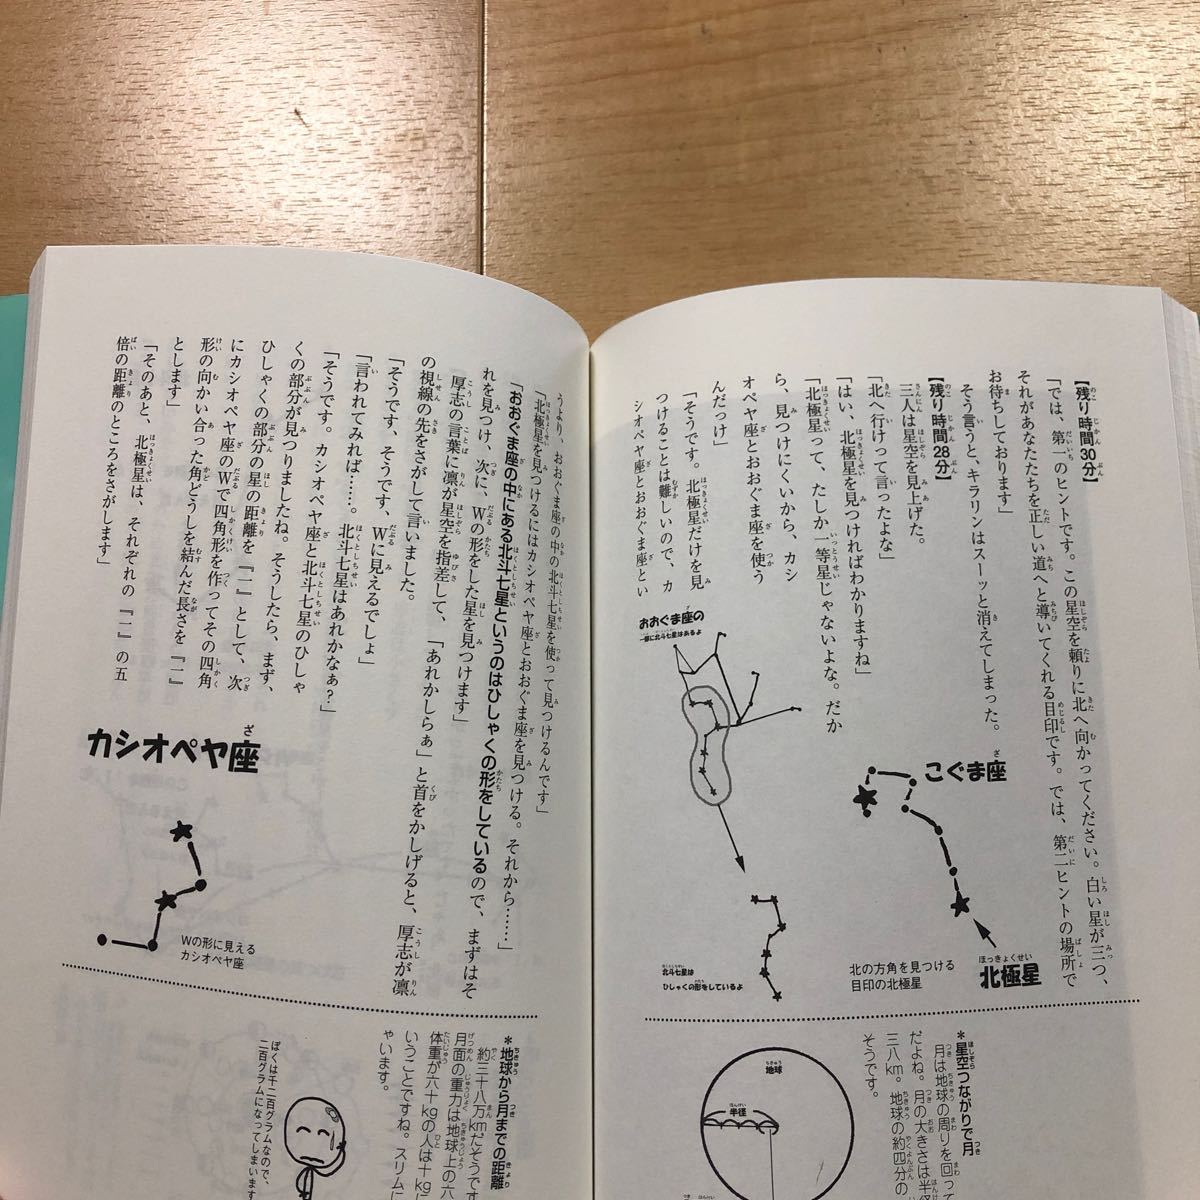 【残り時間30分】
「では、第一のヒントです。この星空を頼りに北へ向かってください。白い星が三つ、
それがあなたたちを正しい道へと導いてくれる目印です。では、第二ヒントの場所で
お待ちしております」
そう言うと、キラリンはスーッと消えてしまった。
【残り時間28分】
三人は星空を見上げた。
「北へ行けって言ったよな」
「はい、北極星を見つければわかりますね」
「北極星って、たしか一等星じゃないよな。だか
ら、見つけにくいから、カシ
オペヤ座とおおぐま座を使う
んだっけ」
「そうです。北極星だけを見
つけることは難しいので、カ
シオペヤ座とおおぐま座とい
こぐま座
北極星
北の方角を見つける
目印の北極星
おおぐま座の
一部に北斗七星はあるよ
北斗七星は
ひしゃくの形をしているよ
*星空つながりで月
月は地球の周りを回って
だよね。月の大きさは半径
三八km。地球の約四分の
そうです。
地球
半径
うより、おおぐま座の中の北斗七星を使って見つけるんです」
「北極星を見つけるにはカシオペヤ座とおおぐま座を見つける。それから……」
「おおぐま座の中にある北斗七星というのはひしゃくの形をしているので、まずはそ
れを見つけ、次に、Wの形をした星を見つけます」
厚志の言葉に凛が星空を指差して、「あれかしらぁ」と首をかしげると、厚志が凛
の視線の先をさがして言いました。
「そうです、そうです、Wに見えるでしょ」
「言われてみれば……。北斗七星はあれかなぁ？」
「そうです。カシオペヤ座と北斗七星のひしゃ
くの部分が見つりましたね。そうしたら、まず、
ひしゃくの部分の星の距離を「一」として、次
にカシオペヤ座のWで四角形を作ってその四角
形の向かい合った角どうしを結んだ長さを「一」
とします」
「そのあと、北極星は、それぞれの「一」の五
倍の距離のところをさがします」
カシオペヤ座
Wの形に見える
カシオペヤ座
*地球から月までの距離
約三十八万kmだそうです
月面の重力は地球上の六
体重が六十kgの人は十kに
いうことですね。スリムに
ゃいます。
ぼくは千二百グラムなので、
二百グラムになってしまいます